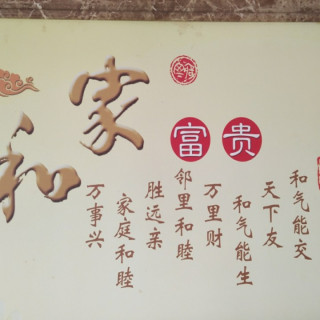 家和
富贵
和气能交
天下友
和气能生
万里财
邻里和睦
胜远亲
家庭和睦
万事兴